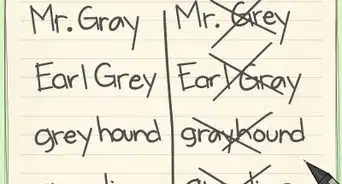 Mr. Gray Mr. Grey
Earl Grey Earl Gray
greyhound grayhound